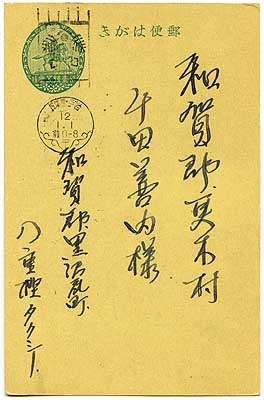 郵便はがき
12
1.1
前0-8
和賀郡更木村
平田善内様
和賀郡黒沢尻町
八重樫タクシー